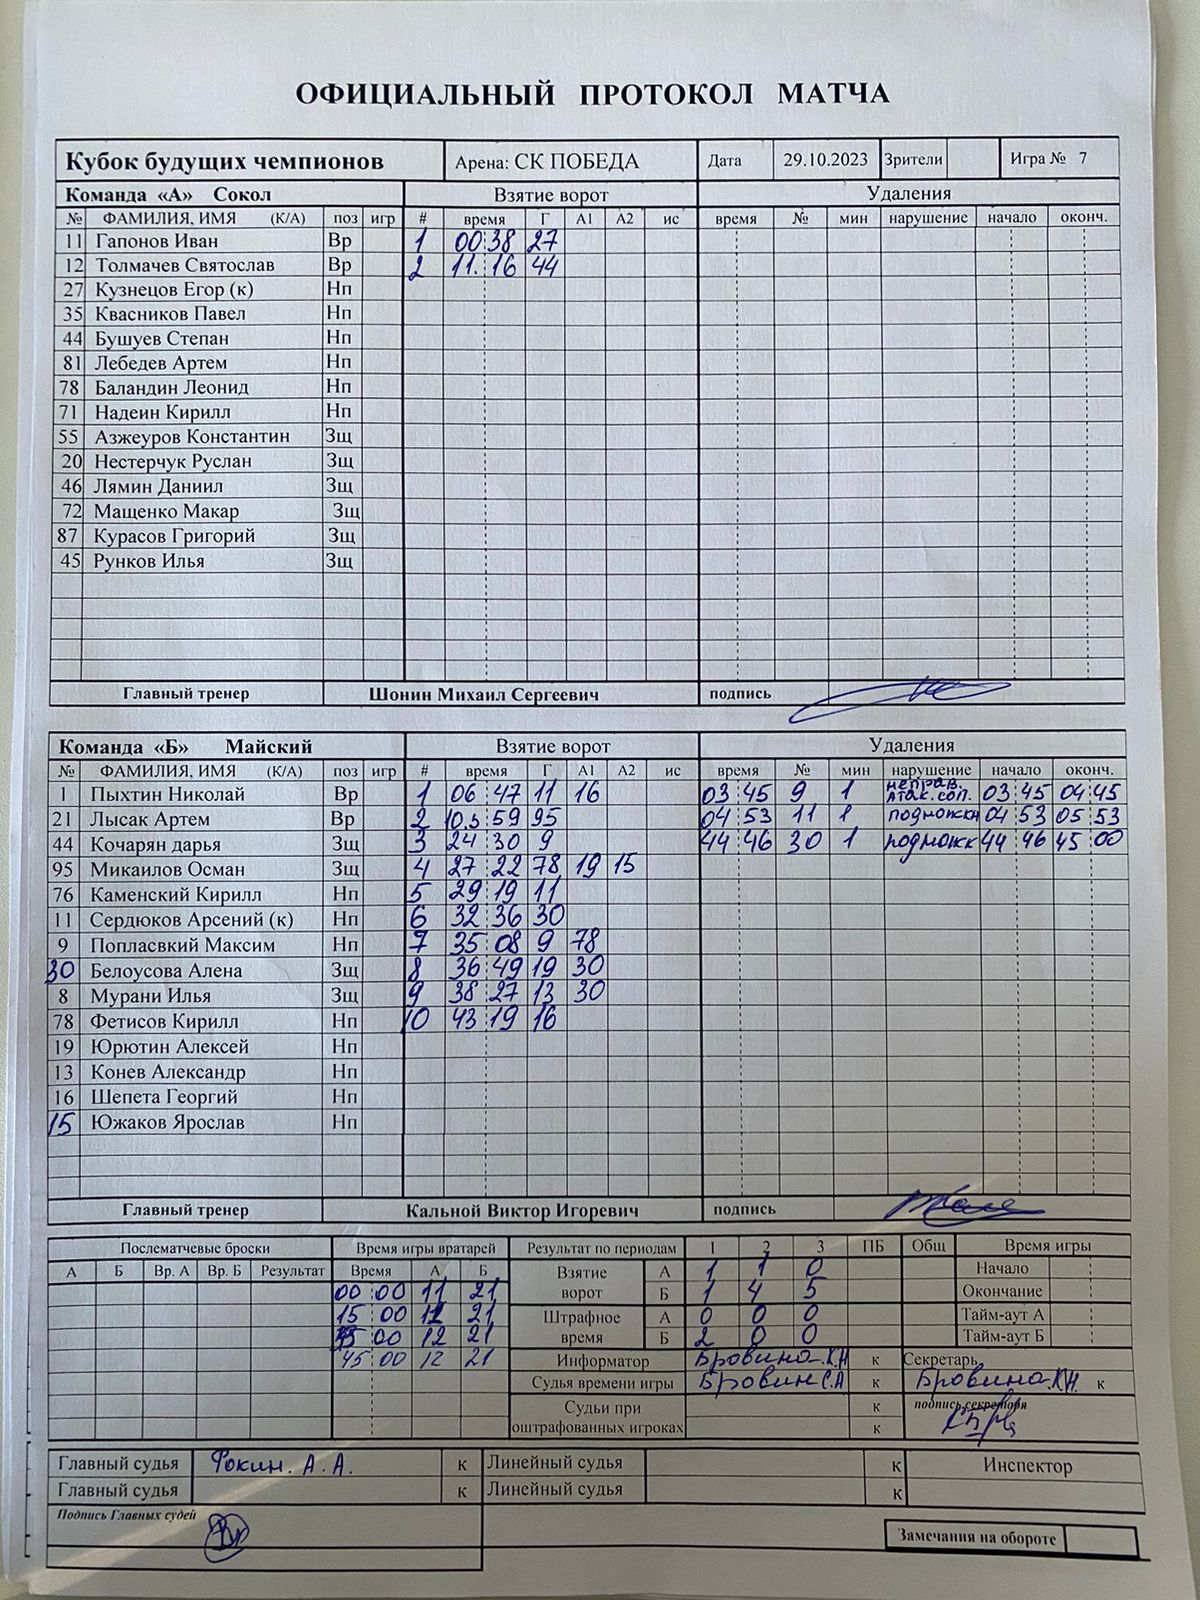 ОФИЦИАЛЬНЫЙ ПРОТОКОЛ МАТЧА
Кубок будущих чемпионов Арена: СК ПОБЕДА Дата 29.10.2023 Зрители Игра № 7
Команда «А» Сокол Взятие ворот Удаления
№ ФАМИЛИЯ, ИМЯ (К/А) поз игр # время Г А1 А2 ис время № мин нарушение начало оконч.
11 Гапонов Иван Вр 1 00 38 27
12 Толмачев Святослав Вр 2 11. 16 44
27 Кузнецов Егор (к) Нп
35 Квасников Павел Нп
44 Бушуев Степан Нп
81 Лебедев Артем Нп
78 Баландин Леонид Нп
71 Надеин Кирилл Нп
55 Азжеуров Константин Зщ
20 Нестерчук Руслан Зщ
46 Лямин Даниил Зщ
72 Мащенко Макар Зщ
87 Курасов Григорий Зщ
45 Рунков Илья Зщ
Главный тренер Шонин Михаил Сергеевич подпись
Команда «Б» Майский Взятие ворот Удаления
№ ФАМИЛИЯ, ИМЯ (К/А) поз игр # время Г А1 А2 ис время № мин нарушение начало оконч.
1 Пыхтин Николай Вр 1 06 47 11 16 03 45 9 1 неправ. атак. соп. 03 45 04 45
21 Лысак Артем Вр 2 59 95 04 53 11 1 подножкн 04 53 05 53
44 Кочарян дарья Зщ 3 24 30 9 44 46 30 1 подножк 44 46 45 00
95 Микаилов Осман Зщ 4 27 22 78 19 15
76 Каменский Кирилл Нп 5 29 19 11
11 Сердюков Арсений (к) Нп 6 32 36 30
9 Попласвкий Максим Нп 7 35 08 9 78
30 Белоусова Алена Зщ 8 36 49 19 30
8 Мурани Илья Зщ 9 38 27 13 30
78 Фетисов Кирилл Нп 10 43 19 16
19 Юрютин Алексей Нп
13 Конев Александр Нп
16 Шепета Георгий Нп
15 Южаков Ярослав Нп
Главный тренер Кальной Виктор Игоревич подпись
Послематчевые броски Время игры вратарей Результат по периодам 1 2 3 ПБ Общ Время игры
А Б Вр. А Вр. Б Результат Время А Б Взятие ворот А 1 1 0 Начало
00 00 11 21 Б 1 4 5 Окончание
15 00 12 21 Штрафное время А 0 0 0 Тайм-аут А
00 12 21 Б 2 0 0 Тайм-аут Б
45 00 12 21 Информатор Бровина.К.Н к Секретарь
Судья времени игры Бровин С.А к Бровина.К.Н. к
Судьи при оштрафованных игроках к подпись секреторя
к
Главный судья Фокин. А. А. к Линейный судья к Инспектор
Главный судья к Линейный судья к
Подпись Главных судей
Замечания на обороте